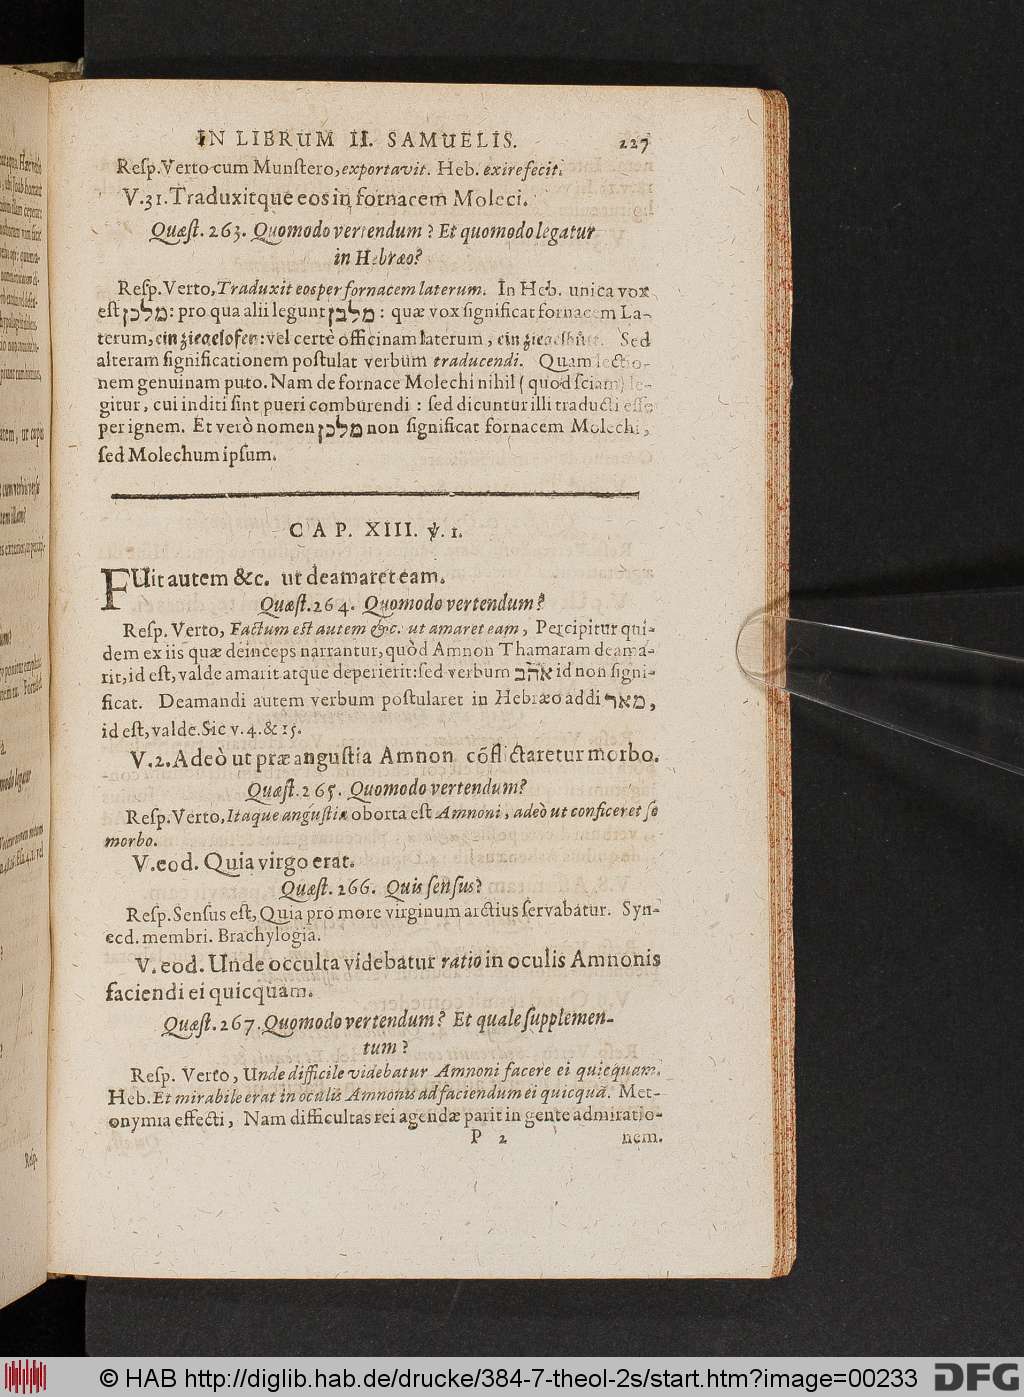 IN LIBRUM II. SAMUELIS. 227
Reſp. Verto cum Munſtero, exportavit. Heb. exire fecit.
V. 31. Traduxitque eos in fornacem Moleci.
Quæſt. 263. Quomodo vertendum? Et quomodo legatur
in Hebræo?
Reſp. Verto, Traduxit eos per fornacem laterum. In Heb. unica vox
eſt מלכן: pro qua alii legunt מלבן: quæ vox ſignificat fornacem La-
terum, ein ziegelofen: vel certè officinam laterum, ein ziegelhüt. Sed
alteram ſignificationem poſtulat verbum traducendi. Quam lectio-
nem genuinam puto. Nam de fornace Molechi nihil (quod ſciam) le-
gitur, cui inditi ſint pueri comburendi: ſed dicuntur illi traducti eſſe
per ignem. Et verò nomen מלכן non ſignificat fornacem Molechi,
ſed Molechum ipſum.
CAP. XIII. ℣. 1.
FUit autem &c. ut deamaret eam.
Quæſt. 264. Quomodo vertendum?
Reſp. Verto, Factum eſt autem &c. ut amaret eam, Percipitur qui-
dem ex iis quæ deinceps narrantur, quòd Amnon Thamaram deama-
rit, id eſt, valde amarit atque deperierit: ſed verbum אהב id non ſigni-
ficat. Deamandi autem verbum poſtularet in Hebræo addi מאד,
id eſt, valde. Sic v. 4. & 15.
V. 2. Adeò ut præ anguſtia Amnon cõflictaretur morbo.
Quæſt. 265. Quomodo vertendum?
Reſp. Verto, Itaque anguſtia oborta eſt Amnoni, adeò ut conficeret ſe
morbo.
V. eod. Quia virgo erat.
Quæſt. 266. Quis ſenſus?
Reſp. Senſus eſt, Quia pro more virginum arctius ſervabatur. Syn-
ecd. membri. Brachylogia.
V. eod. Unde occulta videbatur ratio in oculis Amnonis
faciendi ei quicquam.
Quæſt. 267. Quomodo vertendum? Et quale ſupplemen-
tum?
Reſp. Verto, Unde difficile videbatur Amnoni facere ei quicquam.
Heb. Et mirabile erat in oculis Amnonis ad faciendum ei quicquã. Met-
onymia effecti, Nam difficultas rei agendæ parit in gente admiratio-
P 2 nem.
© HAB http://diglib.hab.de/drucke/384-7-theol-2s/start.htm?image=00233
DFG